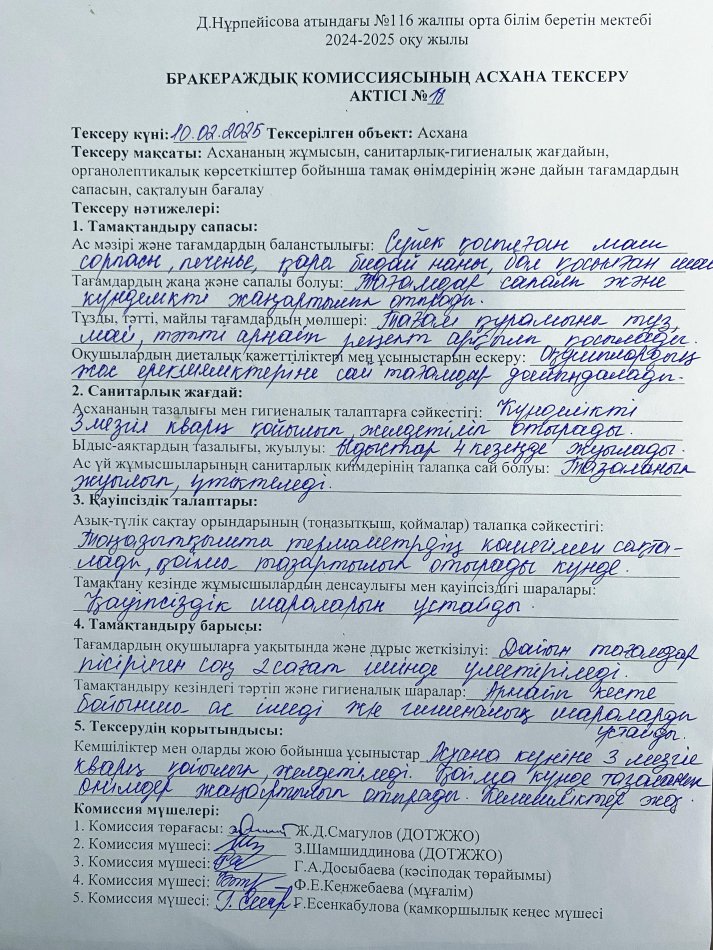 Д.Нұрпейісова атындағы №116 жалпы орта білім беретін мектебі
2024-2025 оқу жылы
БРАКЕРАЖДЫҚ КОМИССИЯСЫНЫҢ АСХАНА ТЕКСЕРУ
АКТІСІ №18
Тексеру күні: 10.02.2025 Тексерілген объект: Асхана
Тексеру мақсаты: Асхананың жұмысын, санитарлық-гигиеналық жағдайын,
органолептикалық көрсеткіштер бойынша тамақ өнімдерінің және дайын тағамдардың
сапасын, сақталуын бағалау
Тексеру нәтижелері:
1. Тамақтандыру сапасы:
Ас мәзірі және тағамдардың баланстылығы: Сүйек қосылған маш
сорпасы, печенье, қара бидай наны, бал қосылған шай
Тағамдардың жаңа және сапалы болуы: Тағамдар сапалы және
күнделікті жаңартылып отырады.
Тұзды, тәтті, майлы тағамдардың мөлшері: Тағам құрамына тұз,
май, тәтті арнайы рецепт арқылы қосылады.
Оқушылардың диеталық қажеттіліктері мен ұсыныстарын ескеру: Оқушылардың
жас ерекшеліктеріне сай тағамдар дайындалады.
2. Санитарлық жағдай:
Асхананың тазалығы мен гигиеналық талаптарға сәйкестігі: Күнделікті
3 мезгіл кварц қойылып, желдетіліп отырады.
Ыдыс-аяқтардың тазалығы, жуылуы: Ыдыстар 4 кезеңде жуылады.
Ас үй жұмысшыларының санитарлық киімдерінің талапқа сай болуы: Тазаланып
жуылып, үтіктеледі.
3. Қауіпсіздік талаптары:
Азық-түлік сақтау орындарының (тоңазытқыш, қоймалар) талапқа сәйкестігі:
Тоңазытқышта термометрдің көмегімен сақта-
лады, қойма тазартылып отырады күнде.
Тамақтану кезінде жұмысшылардың денсаулығы мен қауіпсіздігі шаралары:
Қауіпсіздік шараларын ұстайды.
4. Тамақтандыру барысы:
Тағамдардың оқушыларға уақытында және дұрыс жеткізілуі: Дайын тағамдар
пісірілген соң 2 сағат ішінде үлестіріледі.
Тамақтандыру кезіндегі тәртіп және гигиеналық шаралар: Арнайы кесте
бойынша ас ішеді және гигиеналық шараларды
ұстайды.
5. Тексерудің қорытындысы:
Кемшіліктер мен оларды жою бойынша ұсыныстар Асхана күніне 3 мезгіл
кварц қойылып, желдетіледі. Қойма күнде тазаланып
өнімдер жаңартылып отырады. Кемшіліктер жоқ.
Комиссия мүшелері:
1. Комиссия төрағасы: Ж.Д.Смагулов (ДОТЖЖО)
2. Комиссия мүшесі: З.Шамшиддинова (ДОТЖЖО)
3. Комиссия мүшесі: Г.А.Досыбаева (кәсіподақ төрайымы)
4. Комиссия мүшесі: Ф.Е.Кенжебаева (мұғалім)
5. Комиссия мүшесі: Ғ.Есенкабулова (қамқоршылық кеңес мүшесі